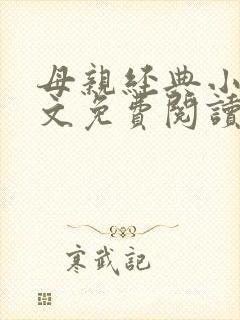 母親經典小
文免費閱讀
寒武記